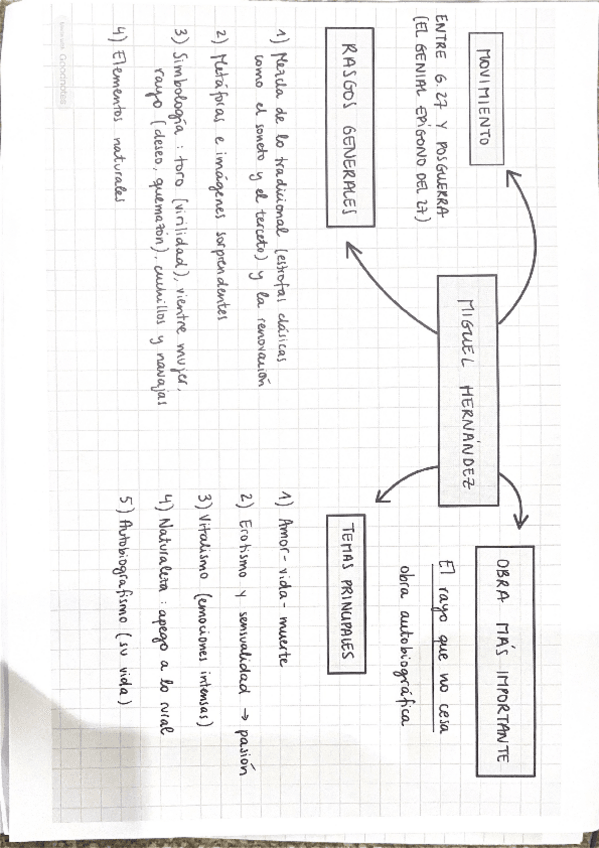 MIGUEL HERNÁNDEZ
MOVIMIENTO
ENTRE G.27 Y POSGUERRA
(EL GENIAL EPÍGONO DEL 27)
OBRA MÁS IMPORTANTE
El rayo que no cesa
obra autobiográfica
RASGOS GENERALES
1) Mezcla de lo tradicional (estrofas clásicas
como el soneto y el terceto) y la renovación
2) Metáforas e imágenes sorprendentes
3) Simbología: toro (virilidad), vientre mujer,
rayo (deseo, quemazón), cuchillos y navajas
4) Elementos naturales
TEMAS PRINCIPALES
1) Amor - vida - muerte
2) Erotismo y sensualidad → pasión
3) Vitalismo (emociones intensas)
4) Naturaleza: apego a lo rural
5) Autobiografismo (su vida)
Goodnotes